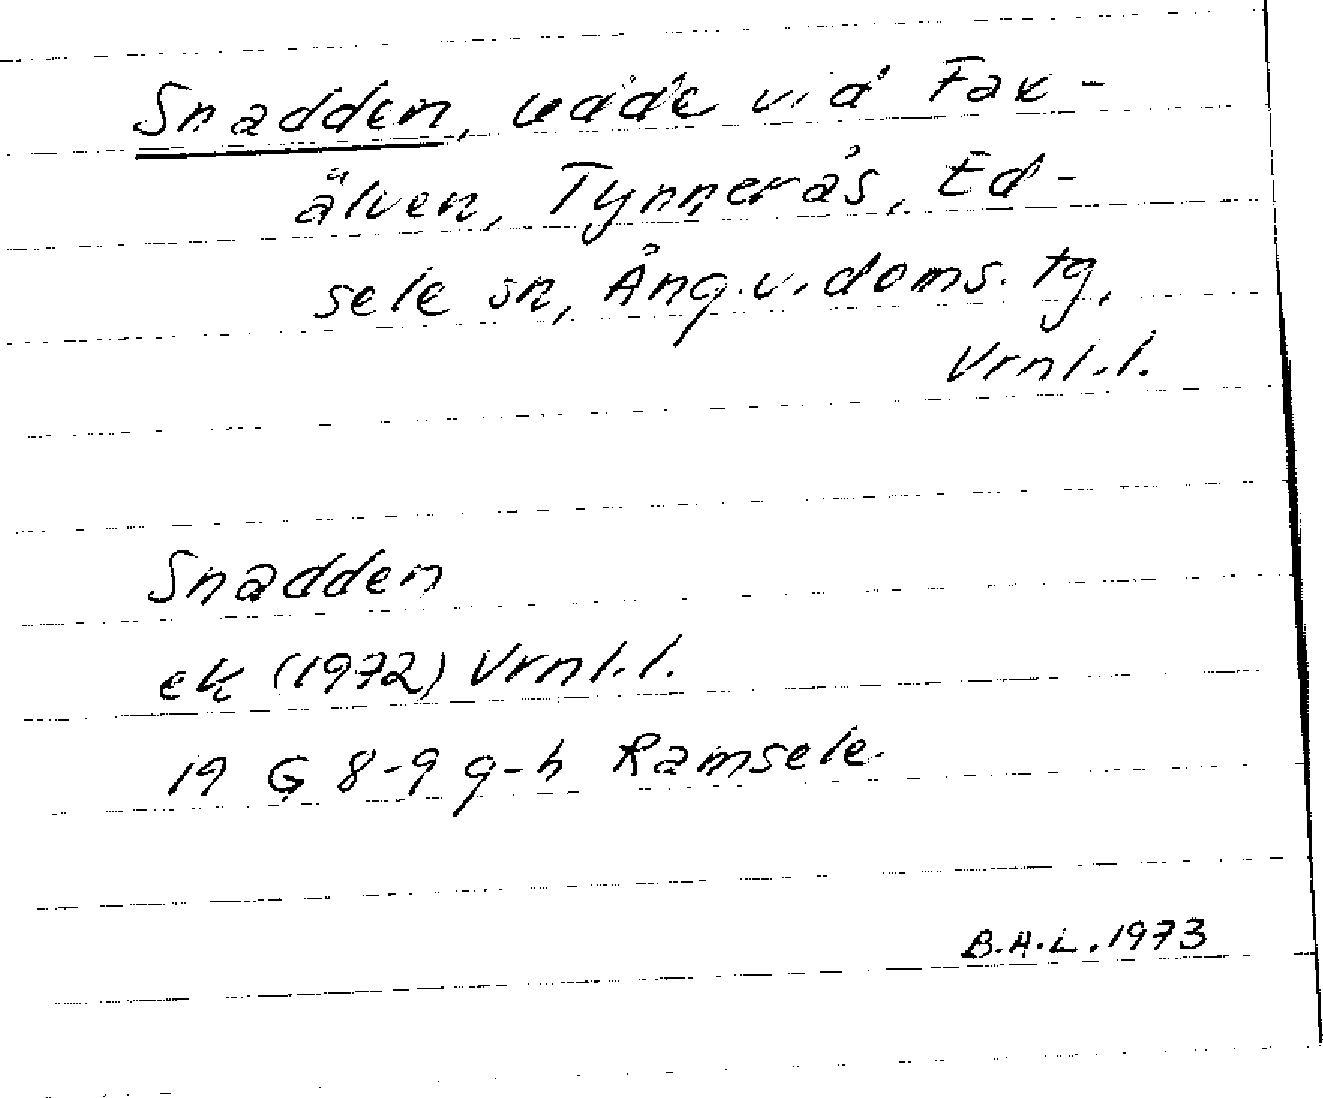 Snadden, udde vid Fax-
älven, Tynnerås, Ed-
sele sn, Ång.v.doms. tg,
Vrnl.l.
Snadden
ek (1972) Vrnl.l.
19 G 8-9 g-h Ramsele.
B.H.L. 1973